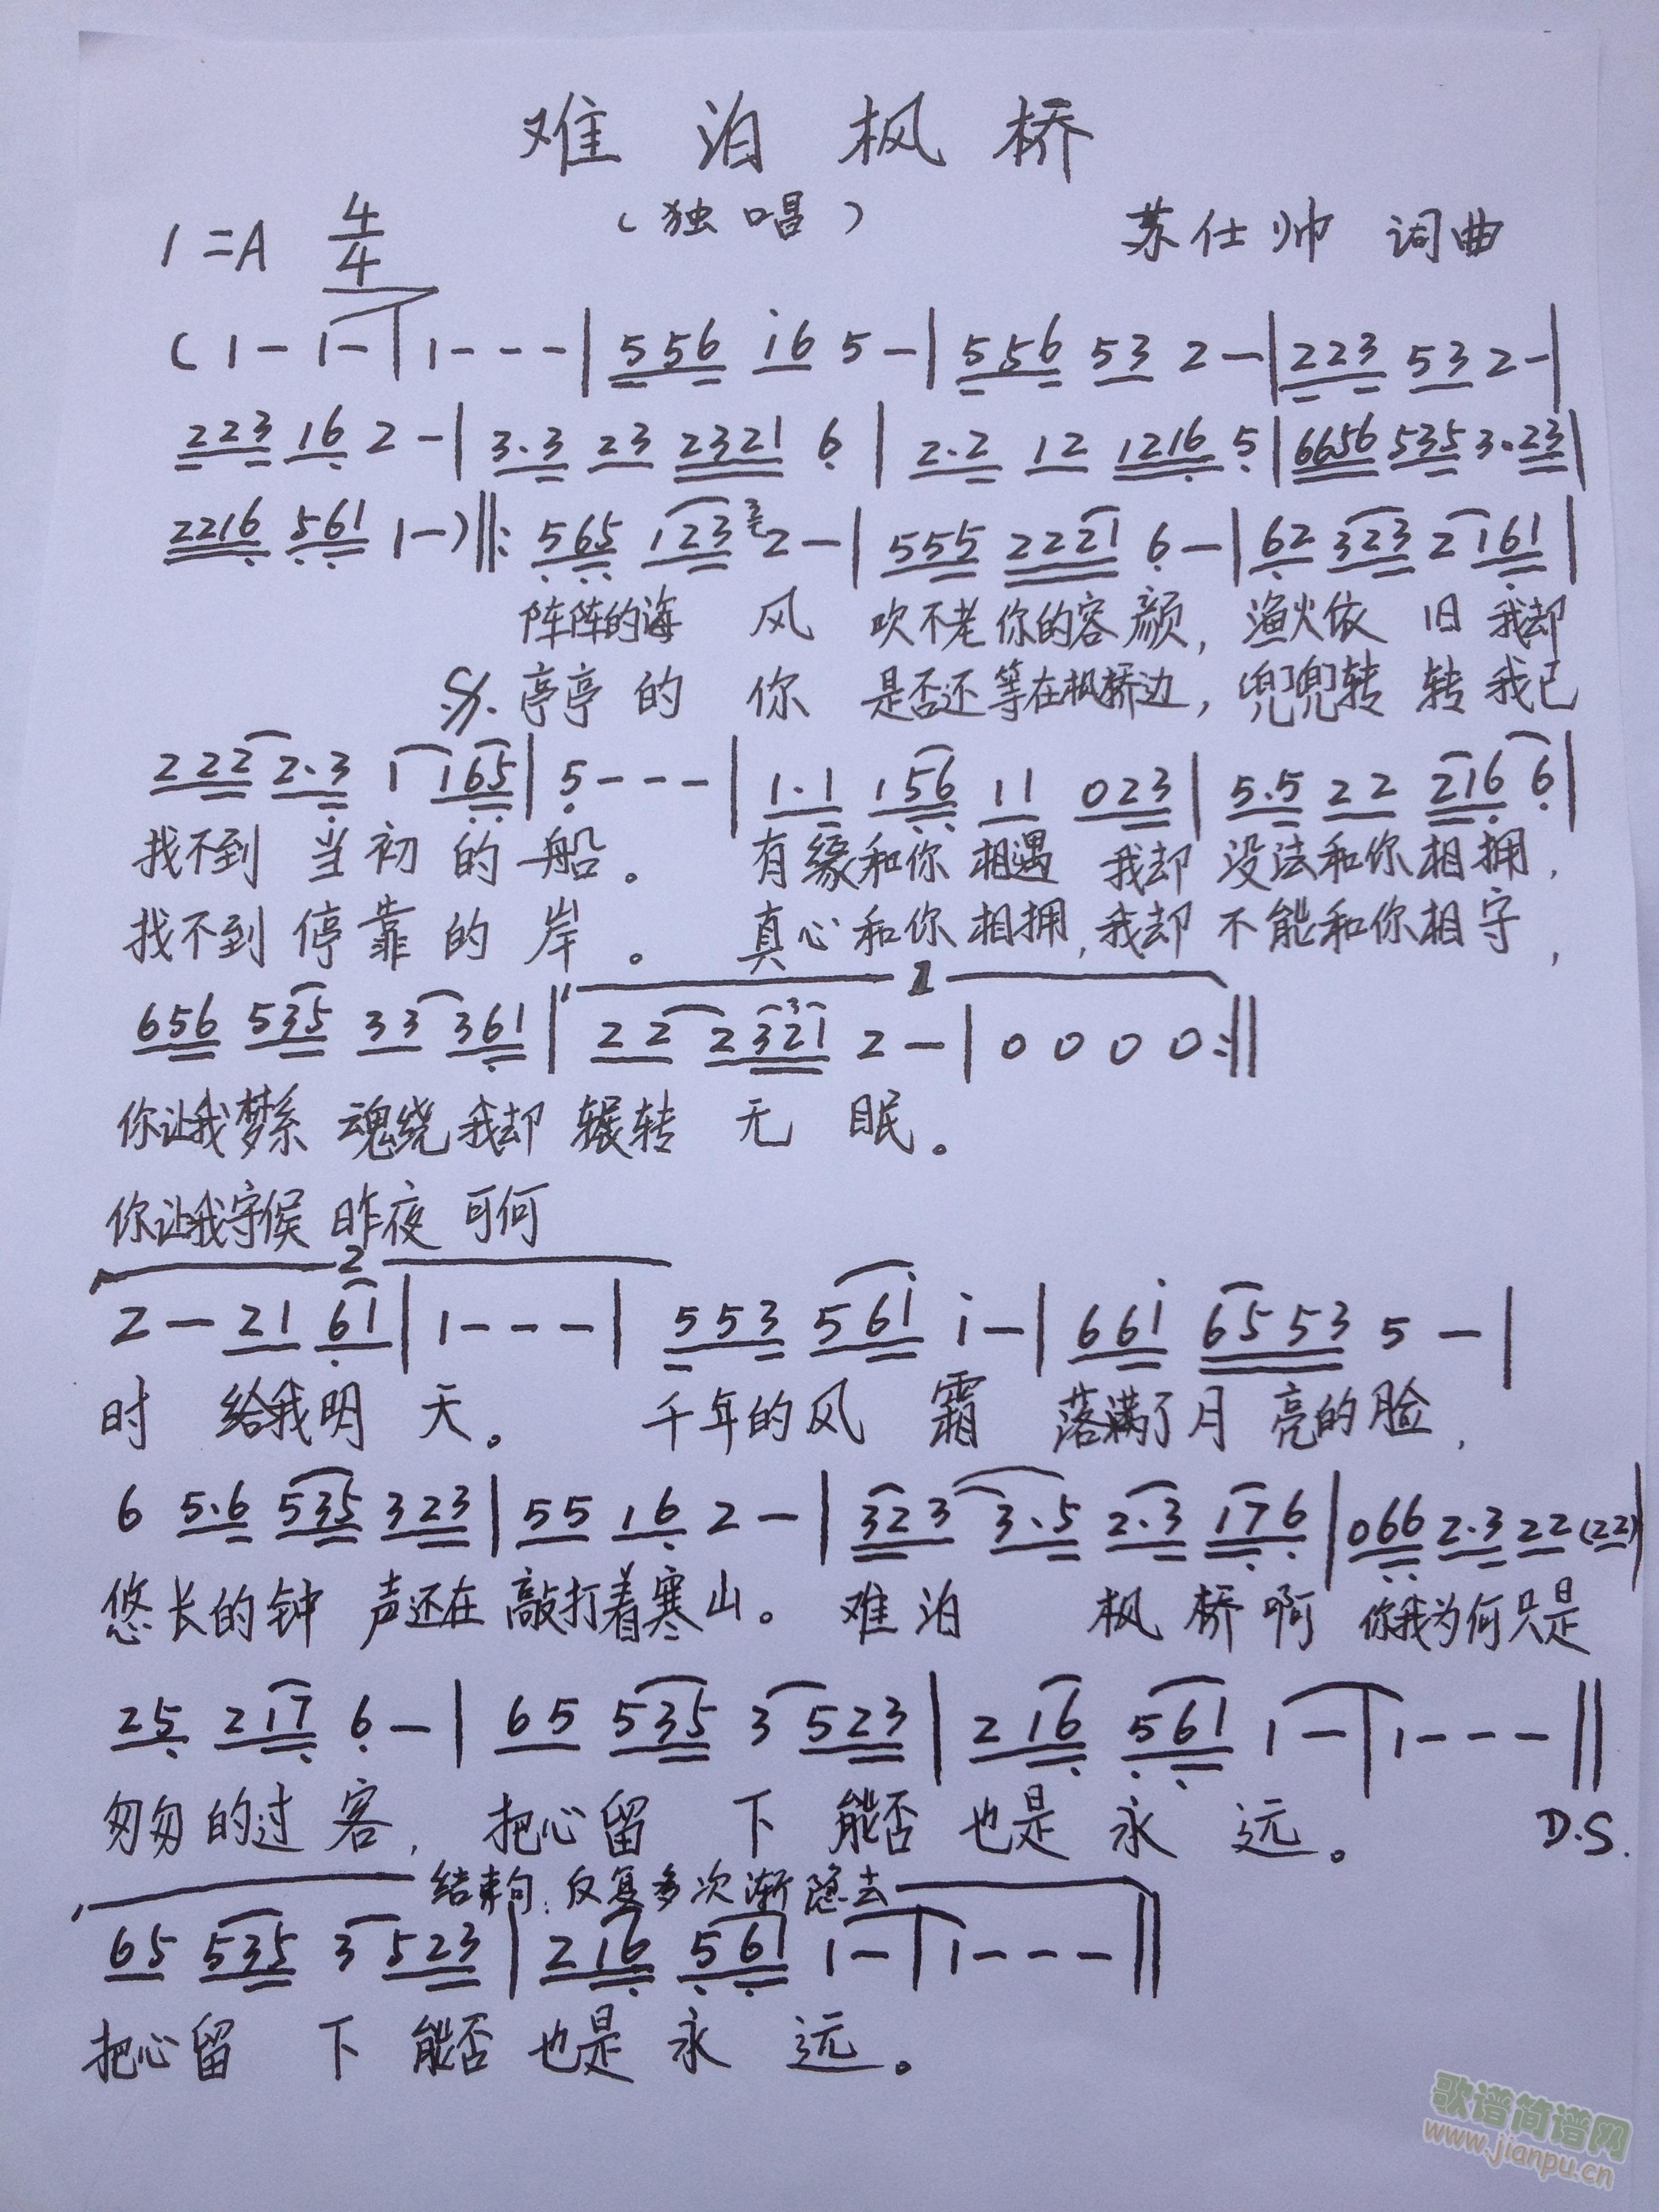 难泊枫桥
(独唱)
1=A 4/4 苏仕帅 词曲
(1-1-|1---|556 i6 5-|556 53 2-|223 53 2-|
223 16 2-|3.3 23 2321 6|2.2 12 1216 5|6656 535 3.23|
2216 561 1-)‖: 565 123 2-|555 2221 6-|62 323 2161|
阵阵的海 风 吹不老你的容颜, 渔火依 旧 我却
𝄋. 亭亭 的 你 是否还等在枫桥边, 兜兜转 转 我已
222 2.3 1 165|5---|1.1 156 11 023|5.5 22 216 6|
找不到 当初 的 船。 有缘和你 相遇 我却 没法和你相拥,
找不到 停靠 的 岸。 真心和你 相拥, 我却 不能和你相守,
1
656 535 33 361|22 2321 2-|0000:‖
你让我梦系 魂绕我却 辗转 无 眠。
你让我守侯 昨夜 可何
2
2-21 61|1---|553 561 i-|66i 6553 5-|
时 给我明 天。 千年的风 霜 落满了月 亮的脸,
6 5.6 535 323|55 16 2-|323 3.5 2.3 176|066 2.3 22 (22)|
悠长的钟 声还在 敲打着寒山。 难泊 枫 桥啊 你我为何只是
25 217 6-|65 535 3 523|216 561 1-|1---‖
匆匆的过 客, 把心留 下 能否 也是 永 远。 D.S.
结束句: 反复多次渐隐去
65 535 3 523|216 561 1-|1---‖
把心留 下 能否 也是 永 远。
歌谱简谱网
www.jianpu.cn